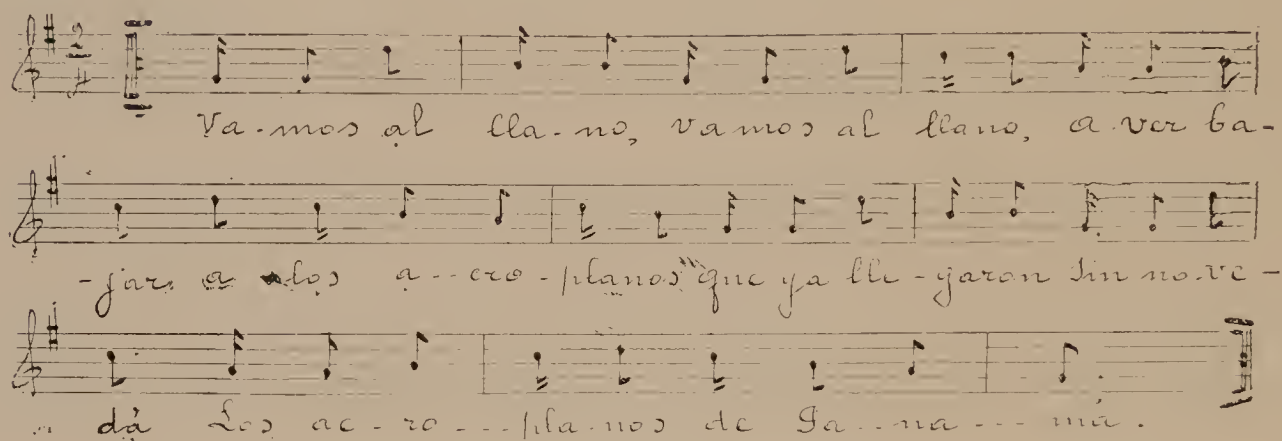 Va-mos al lla-no, vamos al llano, a ver ba-
-jar, a los a--ero-planos "que ya lle-garon sin no-ve-
dá Los ae-ro---pla-nos de Pa--na---má.